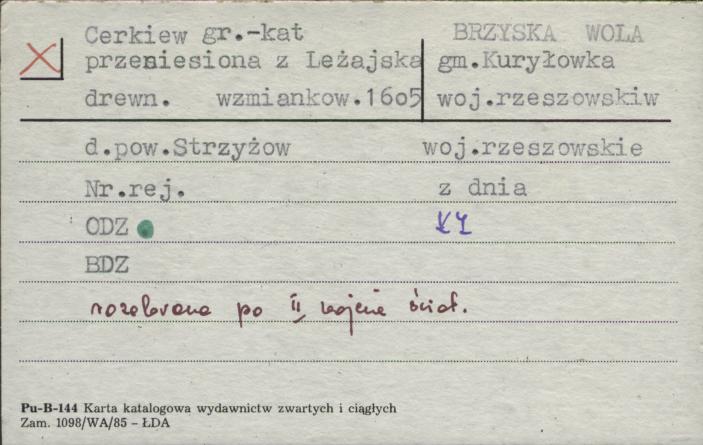 Cerkiew gr.-kat BRZYSKA WOLA
przeniesiona z Leżajska gm.Kuryłowka
drewn. wzmiankow.16o5 woj.rzeszowskiw
d.pow.Strzyżow woj.rzeszowskie
Nr.rej. z dnia
ODZ
BDZ
rozebrana po II wojnie świat.
Pu-B-144 Karta katalogowa wydawnictw zwartych i ciągłych
Zam. 1098/WA/85 – ŁDA